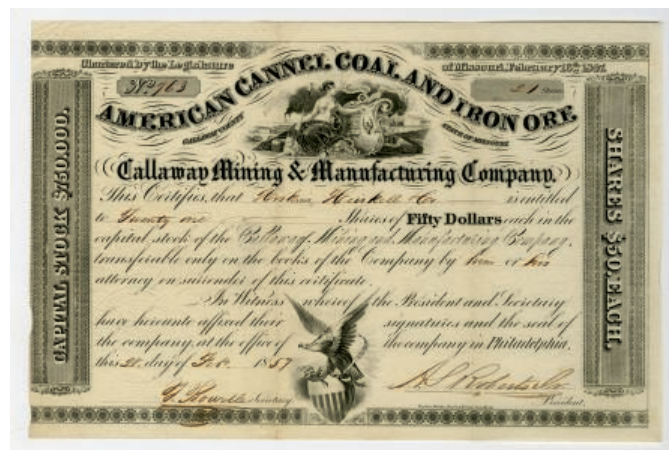 Chartered by the Legislature of Missouri, February
No. 763
21 Shares
AMERICAN CANNEL COAL AND IRON ORE
CALLAWAY COUNTY STATE OF MISSOURI
Callaway Mining & Manufacturing Company.
This Certifies, that is entitled
to Twenty one Shares of Fifty Dollars each in the
capital stock of the Callaway Mining and Manufacturing Company,
transferable only on the books of the Company by him or his
attorney on surrender of this certificate.
In Witness whereof the President and Secretary
have hereunto affixed their signatures and the seal of
the company at the office of the company in Philadelphia,
this 21 day of Feb. 1857
Secretary
President.
CAPITAL STOCK $750,000.
SHARES $50, EACH.